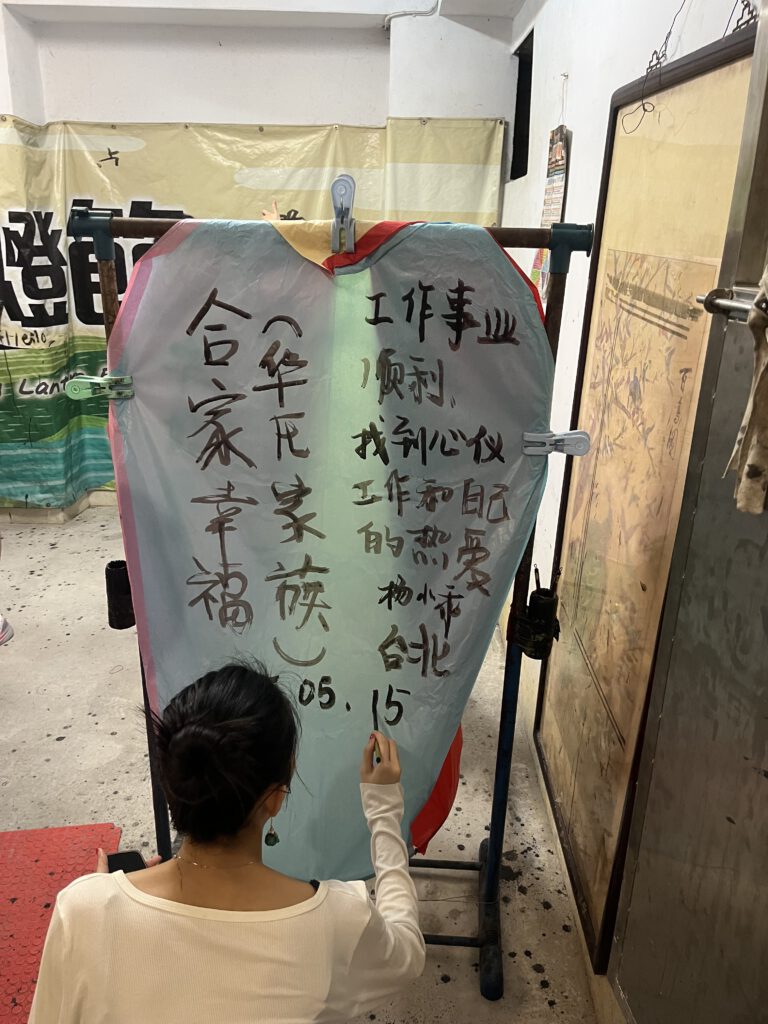 合家幸福
(华氏家族)
工作事业
顺利,
找到心仪
工作和自己
的热爱
杨
台北
05.15
燈
Hello,